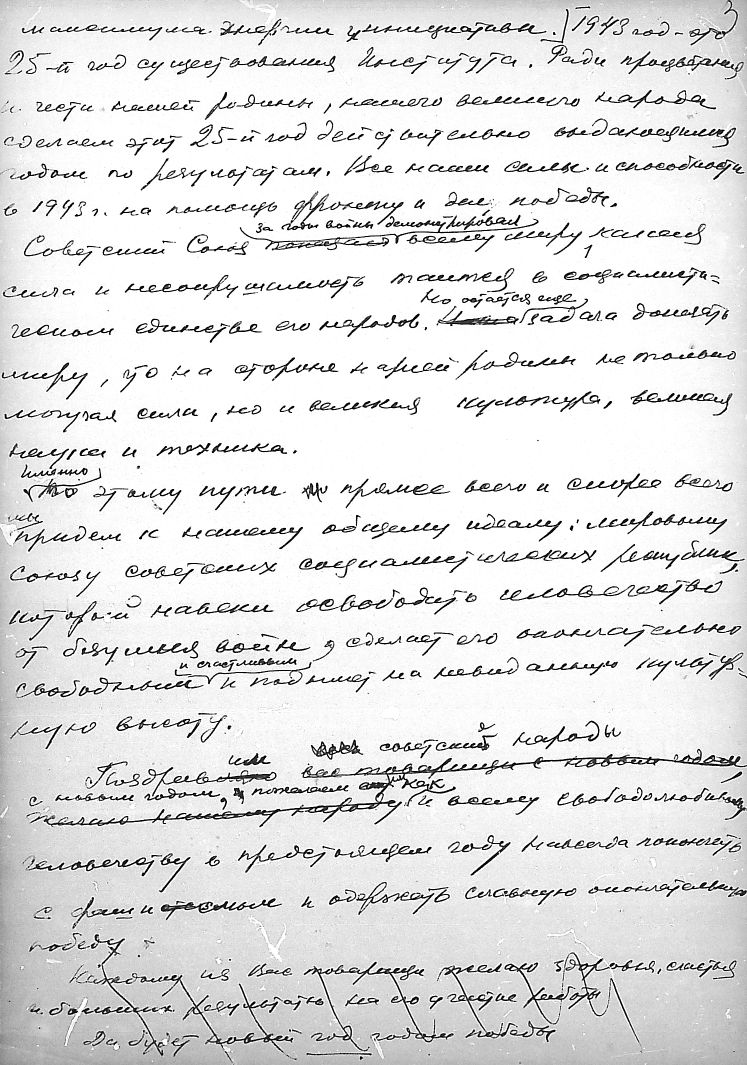 3
максимума энергии и инициативы. 1943 год – это
25-й год существования Института. Ради процветания
и чести нашей родины, нашего великого народа
сделаем этот 25-й год действительно выдающимся
годом по результатам. Все наши силы и способности
в 1943 г. на помощь фронту и для победы.
за годы войны демонстрировал
Советский Союз показал всему миру какая
сила и несокрушимость таится в социалисти=
но остается еще
ческом единстве его народов. задача доказать
миру, что на стороне нашей родины не только
могучая сила, но и великая культура, великая
наука и техника.
именно
По этому пути прямее всего и скорее всего
мы
придем к нашему общему идеалу: мировому
союзу советских социалистических республик,
который навеки освободит человечество
от безумья войн, сделает его окончательно
и счастливым
свободным и поднимет на невиданную культур=
ную высоту.
им советский народы
Поздравляю вас товарищи с новым годом,
с новым годом, и пожелаем как
желаю нашему народу и всему свободолюбивому
человечеству в предстоящем году навсегда покончить
с фашистским и одержать славную окончательную
победу
Каждому из Вас товарищи желаю здоровья, счастья
и больших результатов на его участке работы
Да будет новый год годом победы